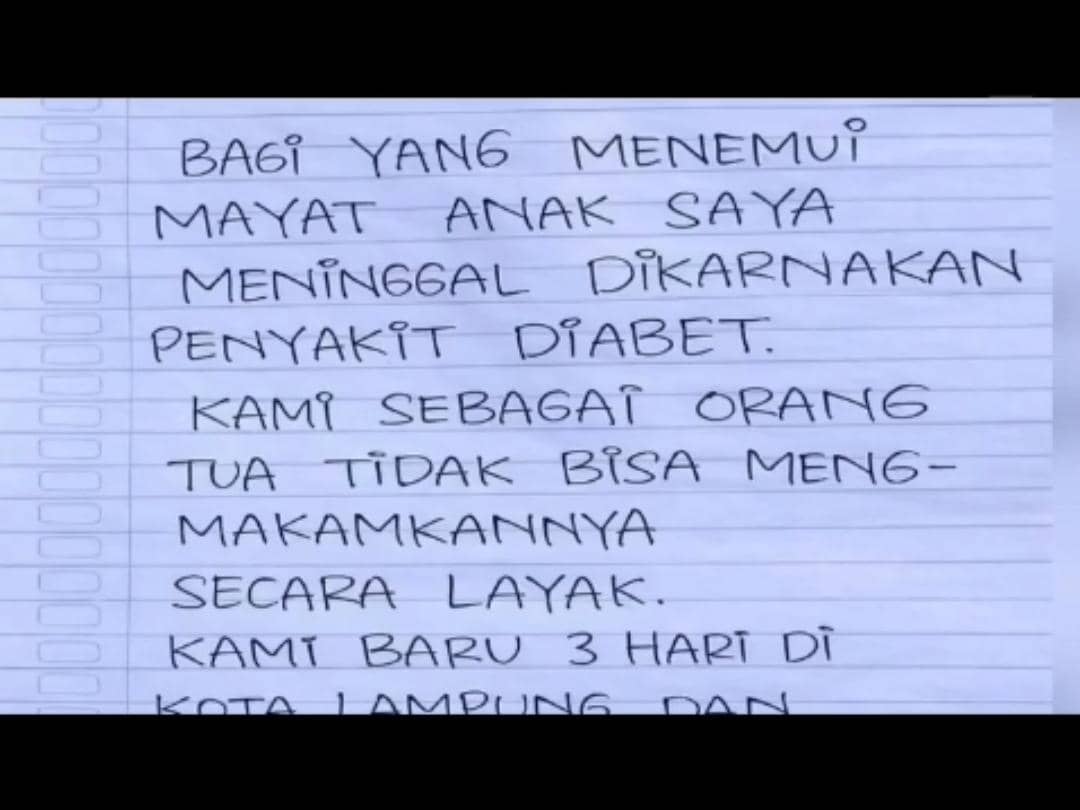 BAGI YANG MENEMUI
MAYAT ANAK SAYA
MENINGGAL DIKARNAKAN
PENYAKIT DIABET.
KAMI SEBAGAI ORANG
TUA TIDAK BISA MENG-
MAKAMKANNYA
SECARA LAYAK.
KAMI BARU 3 HARI DI
KOTA LAMPUNG DAN